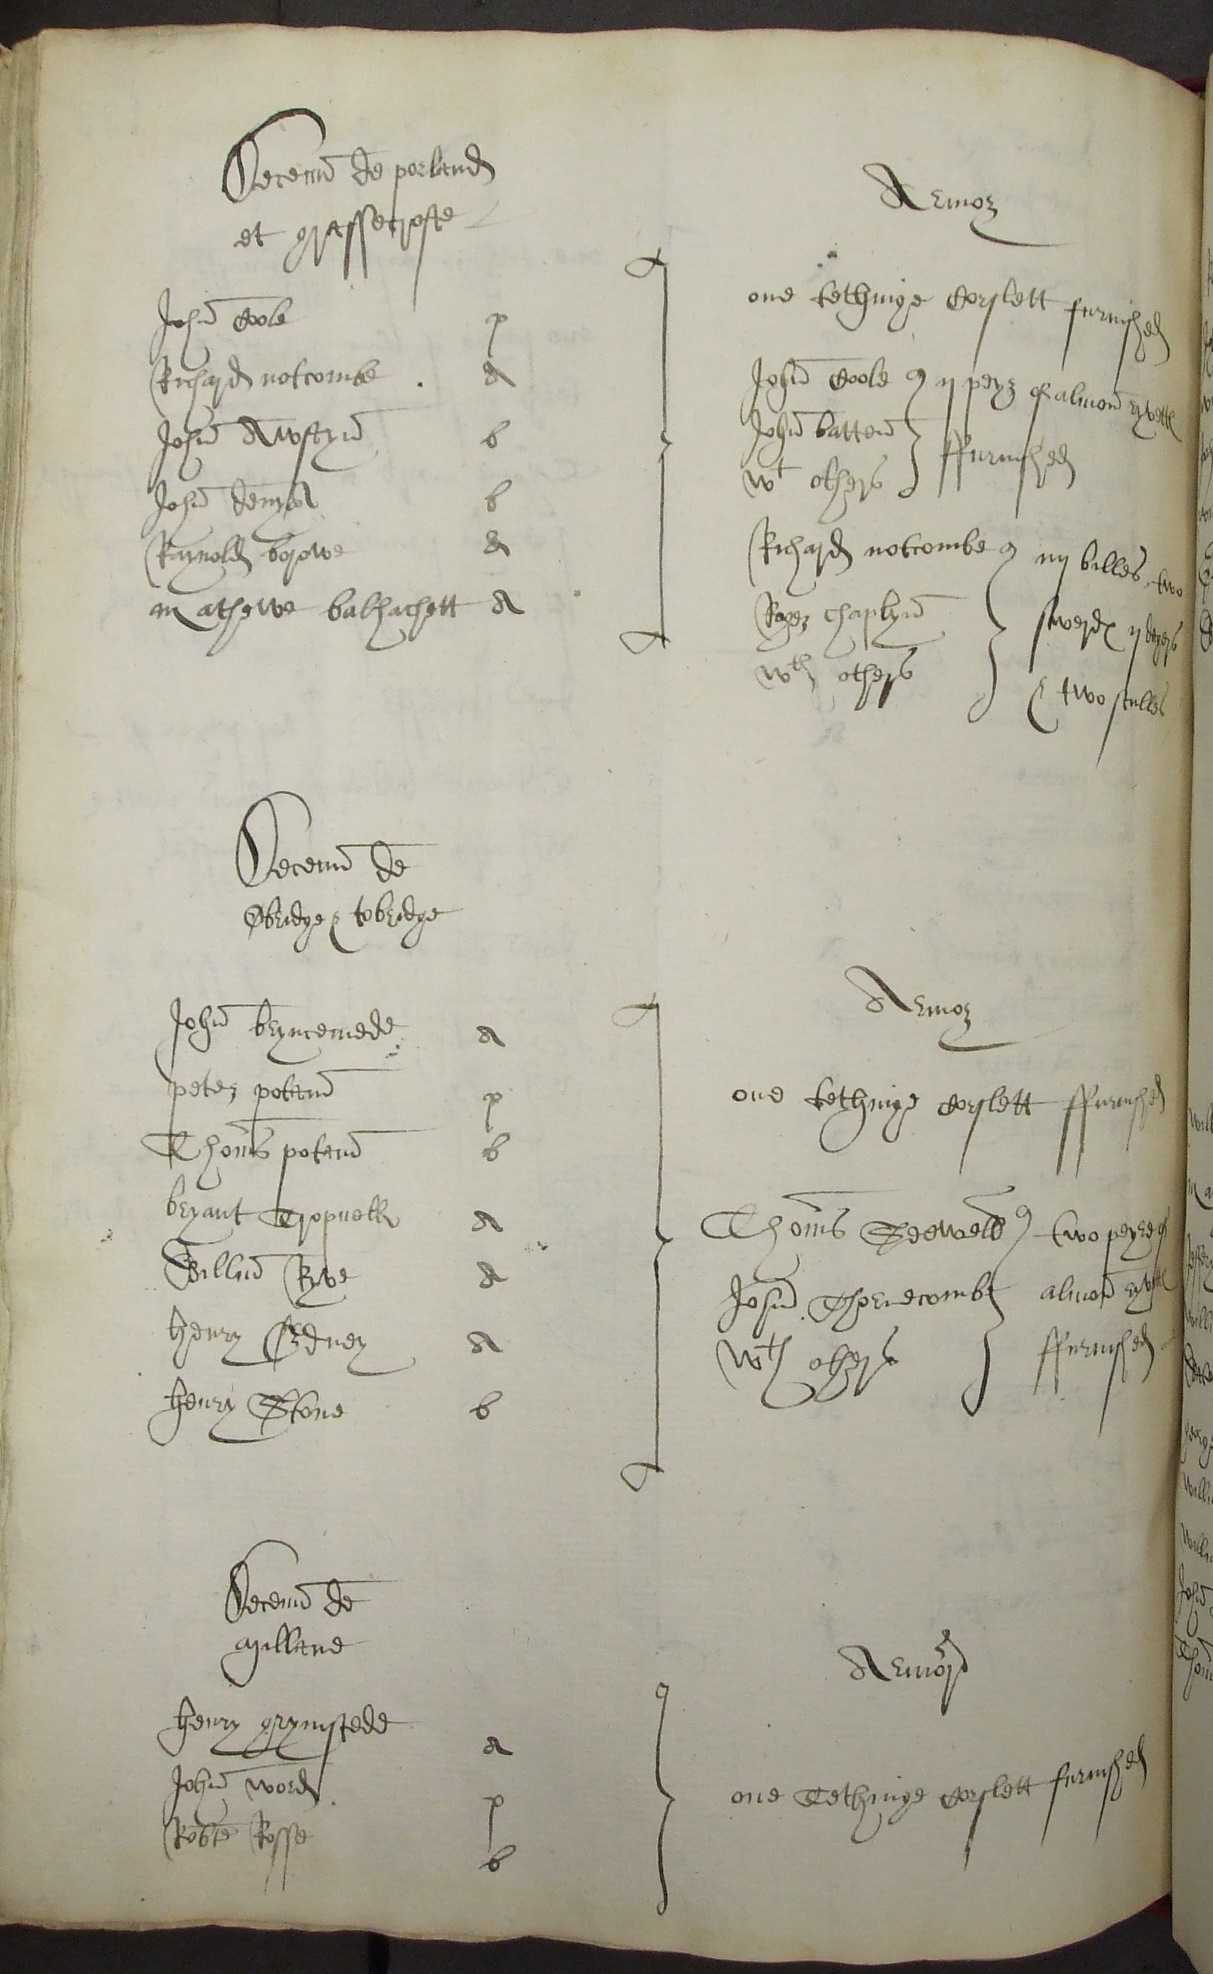 Decenn de porland
et grassecroste
John Coole p
Richard notcombe . a
John Awstyn b
John Denys b
Raynold borowe a
mathewe balhachett a
Armor
one tethinge Corslett furnished
John Coole ij peyr of almon ryvett
John batten
wt others ffurnished
Richard notcombe iiij billes two
Roger Chaplyn swerdes ij dagers
wth others & two sculles
Decenn de
Obridge & tobridge
John bryncemede a
peter poten p
Thoms poten b
bryant Tropnell a
Willm Ryve a
henry Edney a
henry Stone b
Armor
one tethinge Corslett ffurnished
Thoms Seewell two peyre of
John Thornecombe almon ryvett
wth others ffurnished
Decenn de
Millane
henry grymstede a
John word p
Robte Rosse b
Armor
one Tethinge Corslett furnished